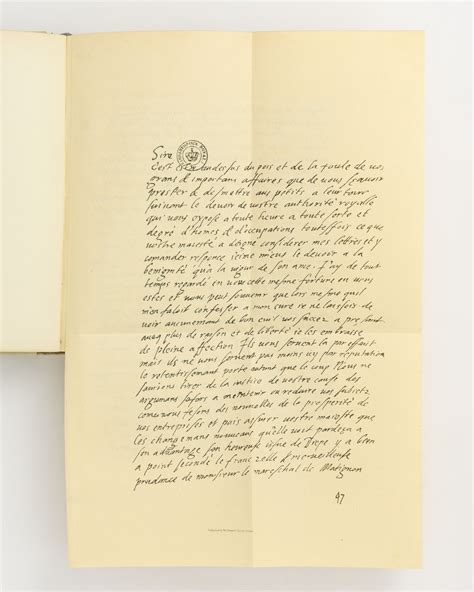 Sire
C'est estre audessus du pois et de la foule de vos
grans & importans affaires que de vous sçavoir
prester & desmettre aus petits a leur tour
suivant le devoir de vostre authorité royalle
qui vous expose a toute heure a toute sorte et
degré d'homes & d'occupations toutesfois ce que
vostre maiesté a deigné considerer mes lettres et y
comander responce i'eime mieus le devoir a la
benignité qu'a la vigur de son ame. J'ay de tout
temps regardé en vous cette mesme fortune ou vous
estes et vous peut souvenir que lors mesmes qu'il
m'en faloit confesser a mon curé ie ne laissois de
voir aucunement de bon euil vos succez a presant
aveq plus de raison et de liberté ie les embrasse
de pleine affection Ils vous servent la par effaict
mais ils ne vous servent pas moins icy par reputation
le retentissemant porte autant que le coup Nous ne
saurions tirer de la iustice de vostre cause des
argumans si fortz a maintenir ou reduire vos subietz
come nous fesons des nouvelles de la prosperité de
vos entreprises et puis assurer vostre maiesté que
les changemans nouveaus qu'elle voit pardeça a
son advantage son hureuse issue de Diepe y a bien
a point secondé le franc zelle & merveilleuse
prudance de monsieur le mareschal de Matignon
47